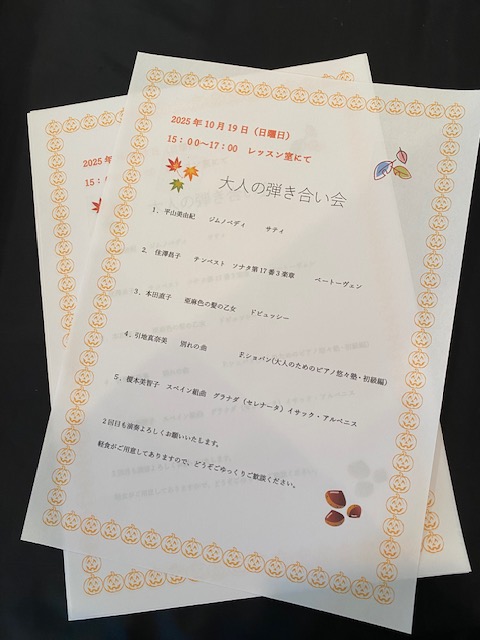 2025年10月19日（日曜日）
15：00〜17：00　レッスン室にて
大人の弾き合い会
1．平山美由紀　ジムノペディ　サティ
2．住澤昌子　テンペスト　ソナタ第17番3楽章　ベートーヴェン
3．本田直子　亜麻色の髪の乙女　ドビュッシー
4．引地真奈美　別れの曲　F.ショパン(大人のためのピアノ悠々塾・初級編)
5．榎木美智子　スペイン組曲　グラナダ（セレナータ）イサック・アルベニス
2回目も演奏よろしくお願いいたします。
軽食がご用意してありますので、どうぞごゆっくりご歓談ください。
2025年
15：